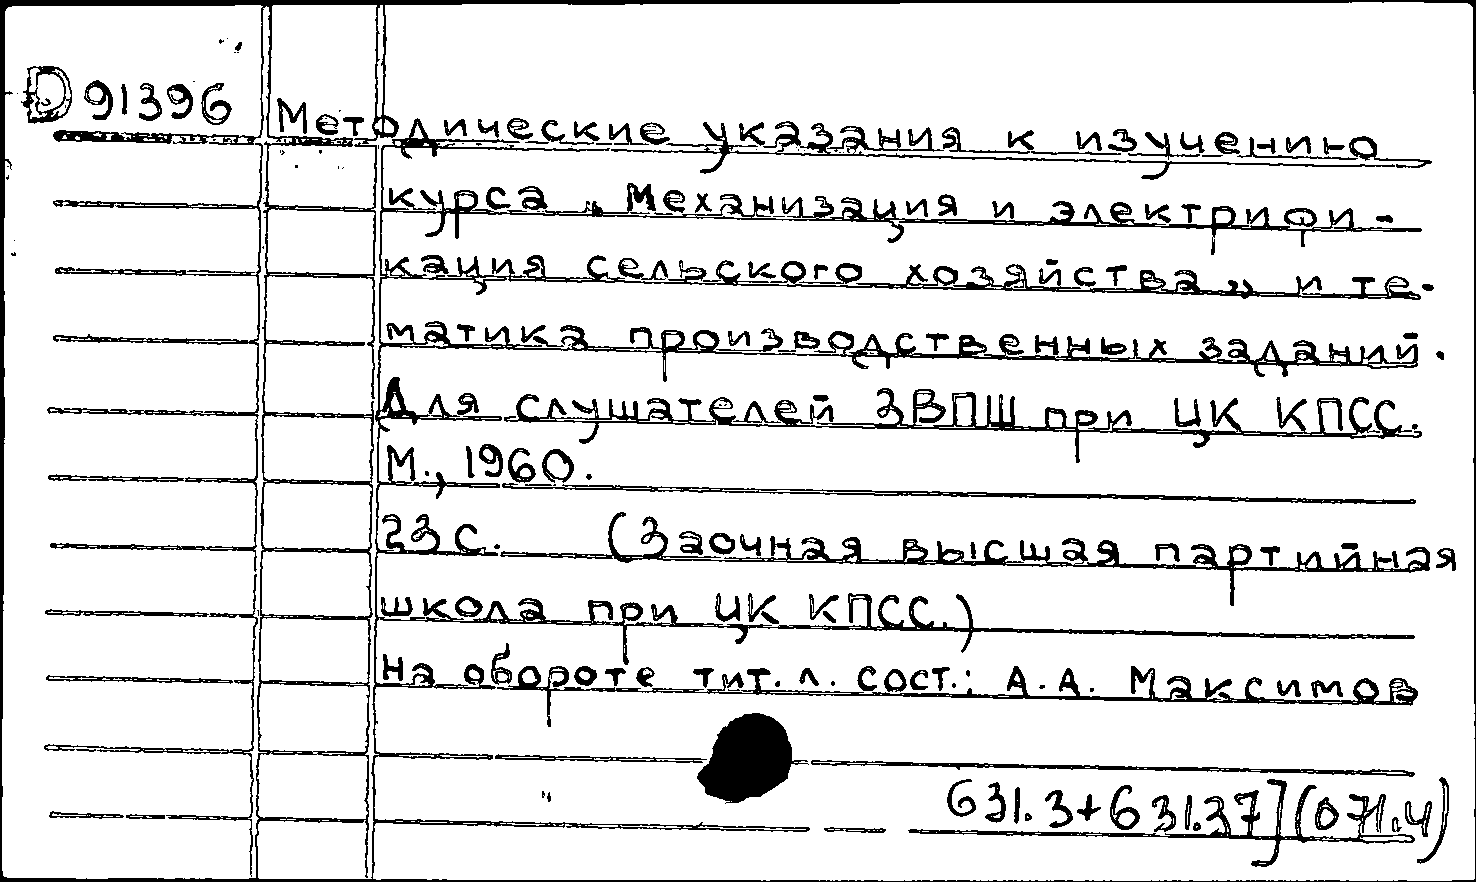 D 91396
Методические указания к изучению
курса „Механизация и электрифи-
кация сельского хозяйства" и те-
матика производственных заданий.
Для слушателей ЗВПШ при ЦК КПСС.
М., 1960.
23 с. (Заочная высшая партийная
школа при ЦК КПСС.)
На обороте тит. л. сост.: А.А. Максимов
631.3+631.37](071.4)